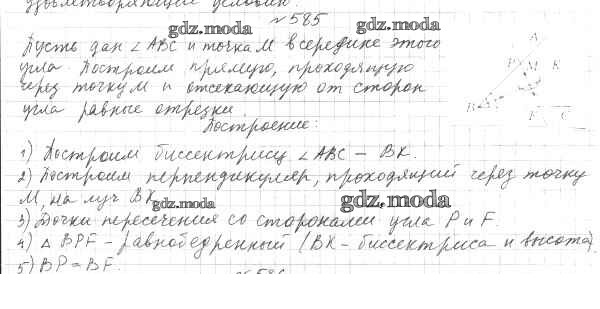 удовлетворяющие условию.
№585
gdz.moda
gdz.moda
Пусть дан ∠ABC и точка M в середине этого
угла. Построим прямую, проходящую
через точку M и отсекающую от сторон
угла равные отрезки.
A
P M K
B
F C
Построение:
1) Построим биссектрису ∠ABC – BK.
2) Построим перпендикуляр, проходящий через точку
M, на луч BK.
gdz.moda
gdz.moda
3) Точки пересечения со сторонами угла P и F.
4) △ BPF – равнобедренный (BK – биссектриса и высота).
5) BP = BF.